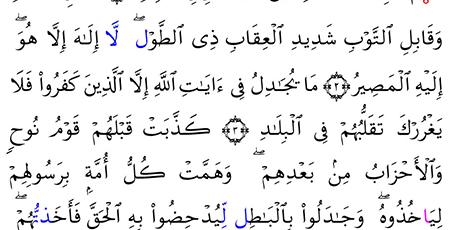 وَقَابِلِ ٱلتَّوْبِ شَدِيدِ ٱلْعِقَابِ ذِى ٱلطَّوْلِ ۖ لَّا إِلَـٰهَ إِلَّا هُوَ ۖ
إِلَيْهِ ٱلْمَصِيرُ ﴿٢﴾ مَا يُجَـٰدِلُ فِى ءَايَـٰتِ ٱللَّهِ إِلَّا ٱلَّذِينَ كَفَرُوا۟ فَلَا
يَغْرُرْكَ تَقَلُّبُهُمْ فِى ٱلْبِلَـٰدِ ﴿٣﴾ كَذَّبَتْ قَبْلَهُمْ قَوْمُ نُوحٍ
وَٱلْأَحْزَابُ مِنۢ بَعْدِهِمْ ۖ وَهَمَّتْ كُلُّ أُمَّةٍۭ بِرَسُولِهِمْ
لِيَاخُذُوهُ ۖ وَجَـٰدَلُوا۟ بِٱلْبَـٰطِل لِّيُدْحِضُوا۟ بِهِ ٱلْحَقَّ فَأَخَذتُّهُمْ ۖ